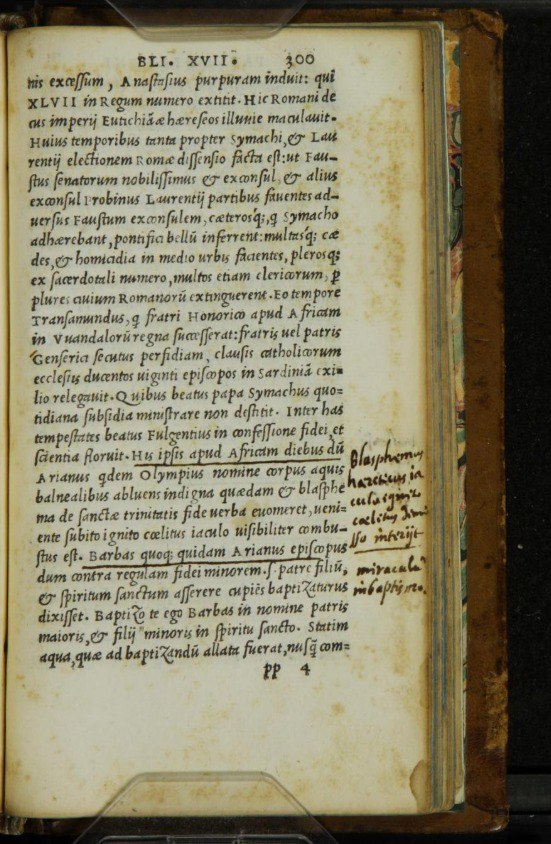 BLI. XVII. 300
nis excessum, Anastasius purpuram induit: qui
XLVII in Regum numero extitit. Hic Romani de
cus imperij Eutichiãæ hæreseos illuuie maculauit.
Huius temporibus tanta propter Symachi, & Lau
rentij electionem Romæ dissensio facta est: ut Fau-
stus senatorum nobilissimus & exconsul, & alius
exconsul Probinus Laurentij partibus fauentes ad-
uersus Faustum exconsulem, cæterosq;, q Symacho
adhærebant, pontifici bellũ inferrent: multasq; cæ
des, & homicidia in medio urbis facientes, plerosq;
ex sacerdotali numero, multos etiam clericorum, p
plures ciuium Romanorũ extinguerent. Eo tempore
Transamundus, q fratri Honorico apud Africam
in Vuandalorũ regna successerat: fratris uel patris
Genserici secutus perfidiam, clausis catholicorum
ecclesijs ducentos uiginti episcopos in Sardiniã exi-
lio relegauit. Quibus beatus papa Symachus quo-
tidiana subsidia ministrare non destitit. Inter has
tempestates beatus Fulgentius in confessione fidei, et
scientia floruit. His ipsis apud Africam diebus dũ
Arianus qdem Olympius nomine corpus aquis
balnealibus abluens indigna quædam & blasphe
ma de sanctæ trinitatis fide uerba euomeret, ueni-
ente subito ignito cœlitus iaculo uisibiliter combu-
stus est. Barbas quoq; quidam Arianus episcopus
dum contra regulam fidei minorem .s. patre filiũ,
& spiritum sanctum asserere cupiẽs baptizaturus
dixisset. Baptizo te ego Barbas in nomine patris
maioris, & filij minoris in spiritu sancto. Statim
aqua, quæ ad baptizandũ allata fuerat, nusq̃ com-
pp 4
Blasphemus
hæreticus ia
culo igneo
cœlitus demi
sso interijt
miraculũ
in baptismo.